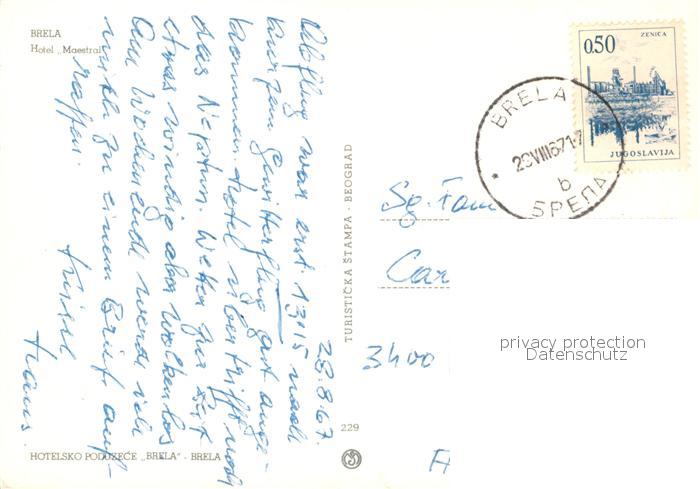 BRELA
Hotel „Maestral"
ZENICA
0.50
JUGOSLAVIJA
BRELA
28VIII67-17
b
БРЕЛА
28.8.67.
Abflug war erst 1315 nach
kurzem Gewitterflug gut ange-
kommen. Hotel übertrifft noch
das Neptun. Wetter zur Zeit
etwas windig aber wolkenlos
Am Wochenende werde ich
mich zu einem Brief auf-
raffen.
Franz
TURISTIČKA ŠTAMPA - BEOGRAD
Sg. Fam
Car
3400
A
privacy protection
Datenschutz
229
HOTELSKO PODUZEĆE „BRELA" - BRELA